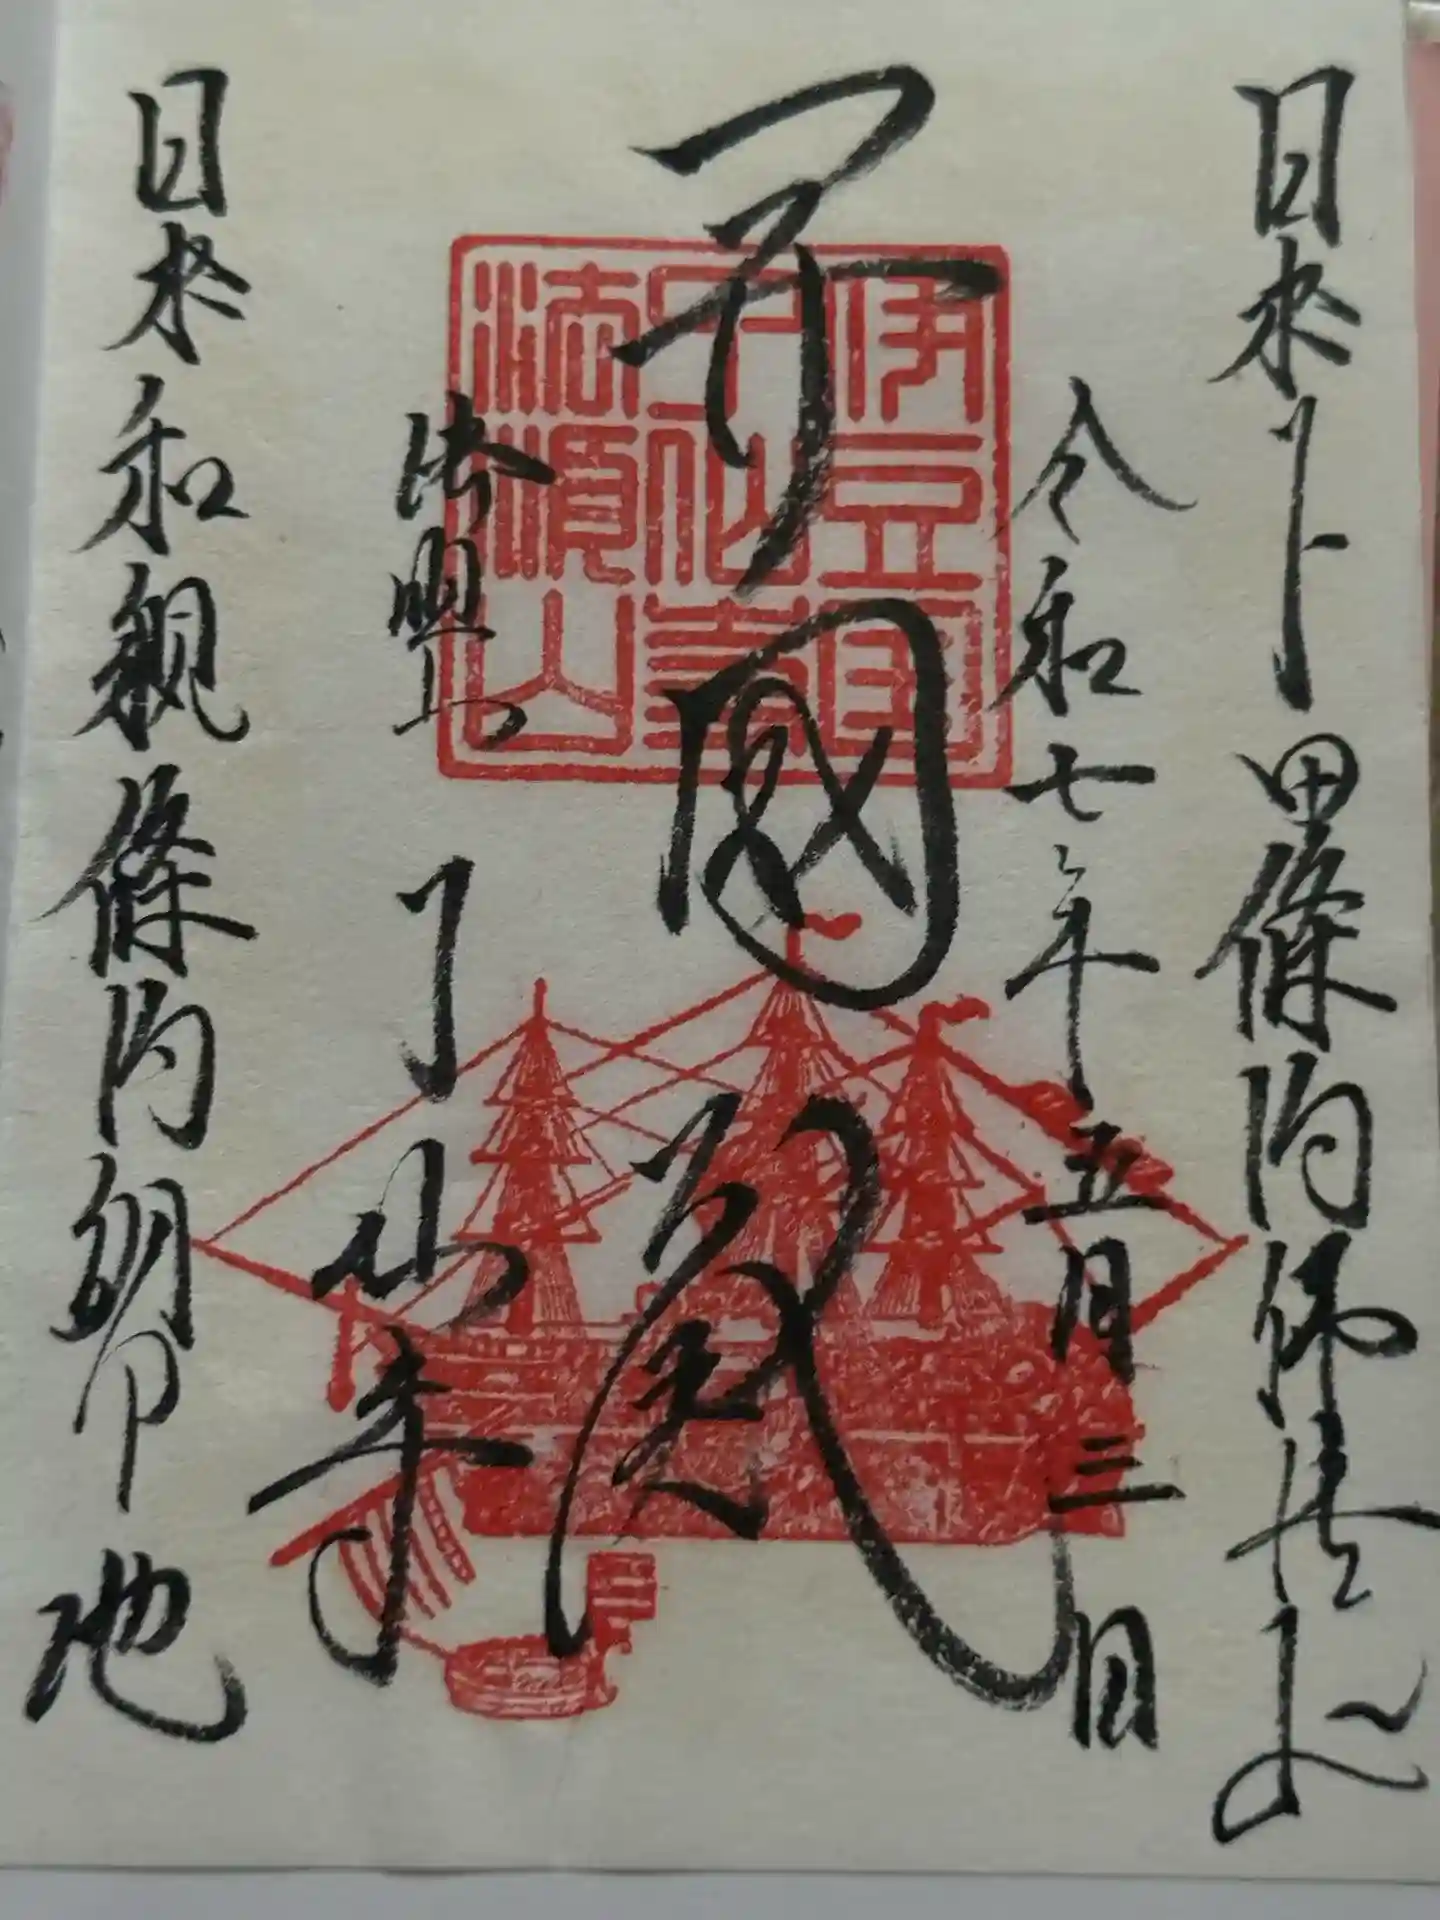 日米下田條約
令和七年五月三日
國
伊豆國
了仙寺
法順山
法順山 了仙寺
日米和親條約調印地